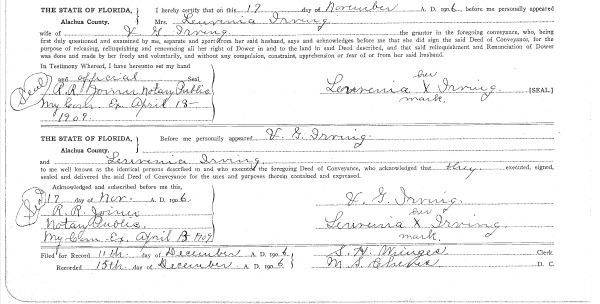 THE STATE OF FLORIDA, I hereby certify that on this 17 day of November A. D. 1906, before me personally appeared
Alachua County. Mrs. Leuvenia Irving
wife of V. G. Irving the grantor in the foregoing conveyance, who, being
first duly questioned and examined by me, separate and apart from her said husband, says and acknowledges before me that she did sign the said Deed of Conveyance, for the
purpose of releasing, relinquishing and renouncing all her right of Dower in and to the land in said Deed described, and that said relinquishment and Renunciation of Dower
was done and made by her freely and voluntarily, and without any compulsion, constraint, apprehension or fear of or from her said husband.
In Testimony Whereof, I have hereunto set my hand
and official Seal her
(Seal) R. R. Joiner Notary Public Leuvenia X Irving. [SEAL]
My Com. Ex. April 13- mark.
1909.
THE STATE OF FLORIDA, Before me personally appeared V. G. Irving.
Alachua County.
and Leuvenia Irving,
to me well known as the identical persons described in and who executed the foregoing Deed of Conveyance, who acknowledged that they executed, signed,
sealed and delivered the said Deed of Conveyance for the uses and purposes therein contained and expressed.
Acknowledged and subscribed before me this,
(Seal) 17 day of Nov. A. D. 1906 V. G. Irving.
R. R. Joiner her
Notary Public. Leuvenia X Irving.
My Com. Ex. April 13 1909 mark.
Filed for Record 11th. day of December A. D. 1906. S. H. Wienges Clerk
Recorded 15th. day of December A. D. 1906. M. S. D. C.